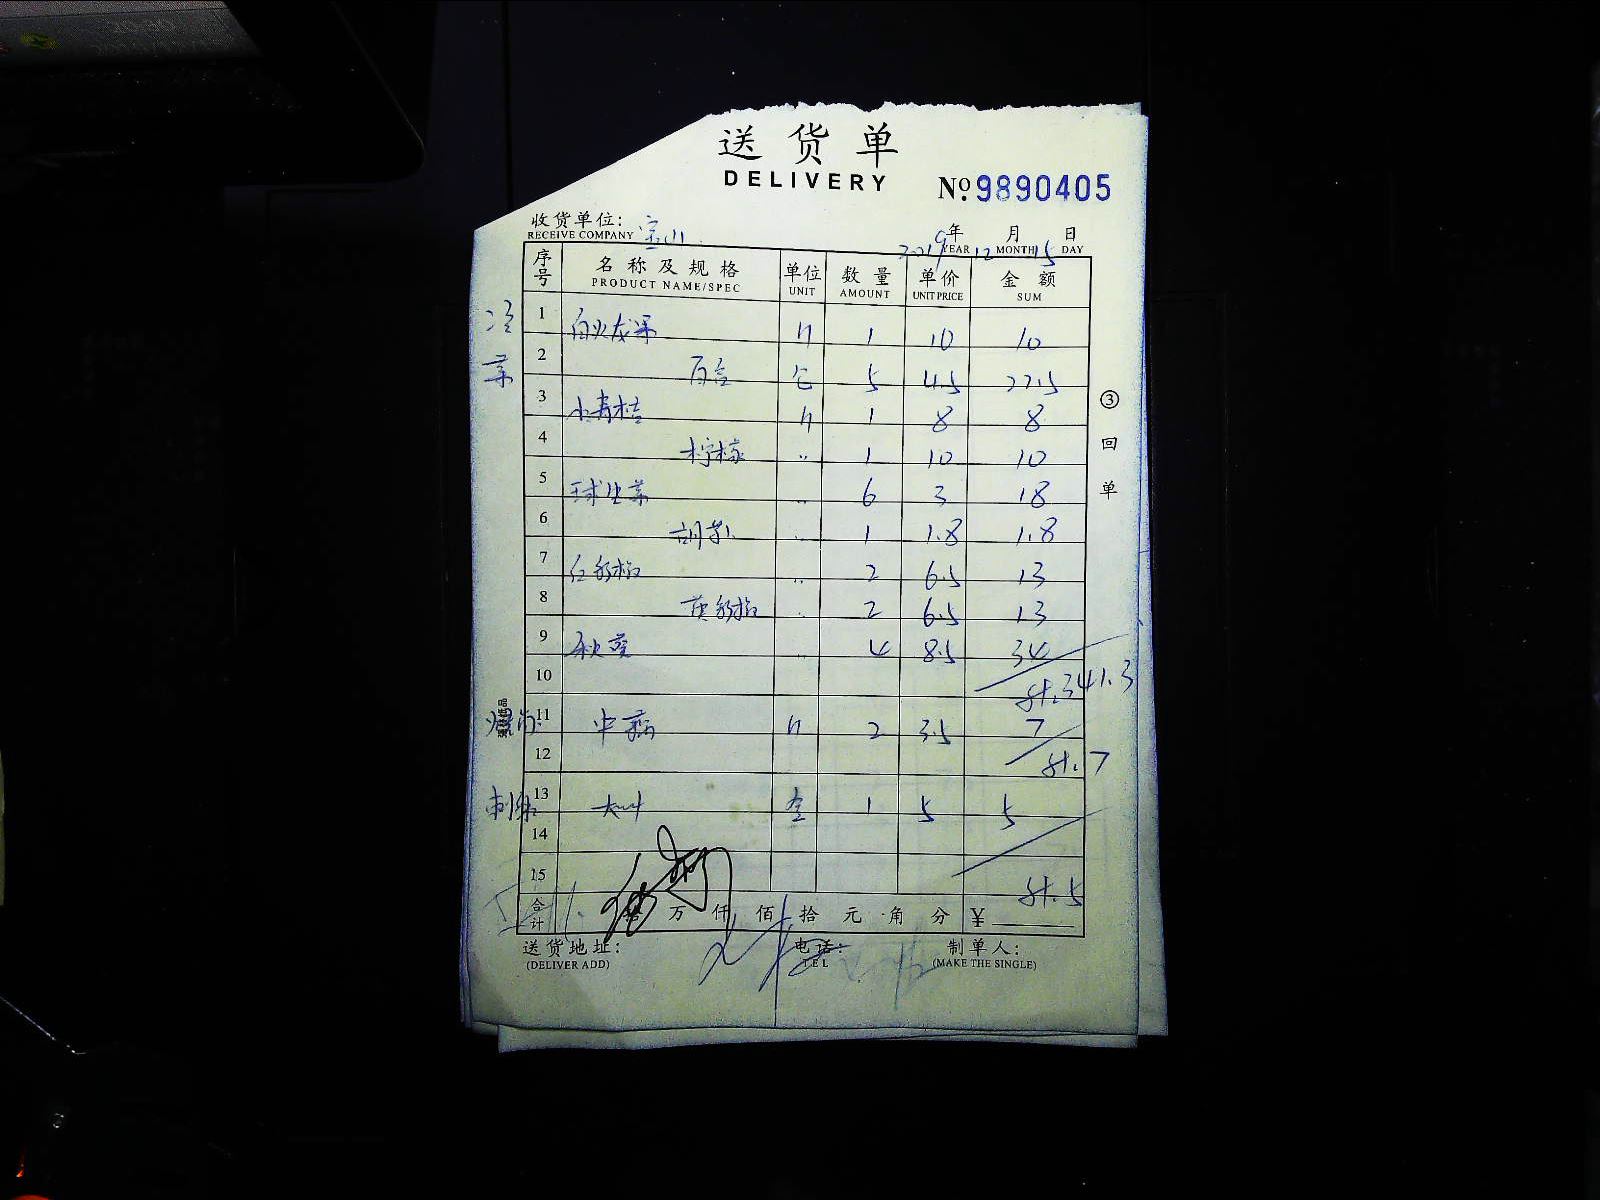 送货单
DELIVERY
№ 9890405
收货单位: 宝山
RECEIVE COMPANY
2019年 12月 15日
YEAR MONTH DAY
序号 名称及规格 单位 数量 单价 金额
PRODUCT NAME/SPEC UNIT AMOUNT UNIT PRICE SUM
冷菜
1 白火龙果 斤 1 10 10
2 百合 包 5 4.5 22.5
3 小青桔 斤 1 8 8
4 柠檬 〃 1 10 10
5 球生菜 〃 6 3 18
6 胡萝卜 〃 1 1.8 1.8
7 红彩椒 〃 2 6.5 13
8 黄彩椒 〃 2 6.5 13
9 秋葵 〃 4 8.5 34
10 计.341.3
11 斤 2 3.5 7
12 计.7
13 1 5 5
14
15 计.5
合计 万 仟 佰 拾 元 角 分 ¥
送货地址: 电话: 制单人:
(DELIVER ADD) TEL (MAKE THE SINGLE)
③回单